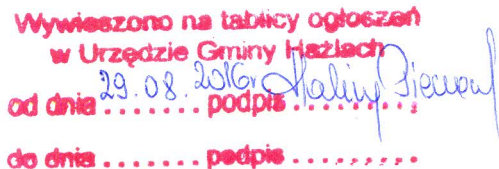 Wywieszono na tablicy ogłoszeń
w Urzędzie Gminy Hażlach
od dnia 29.08.2016r podpis Halina
do dnia ....... podpis ..........